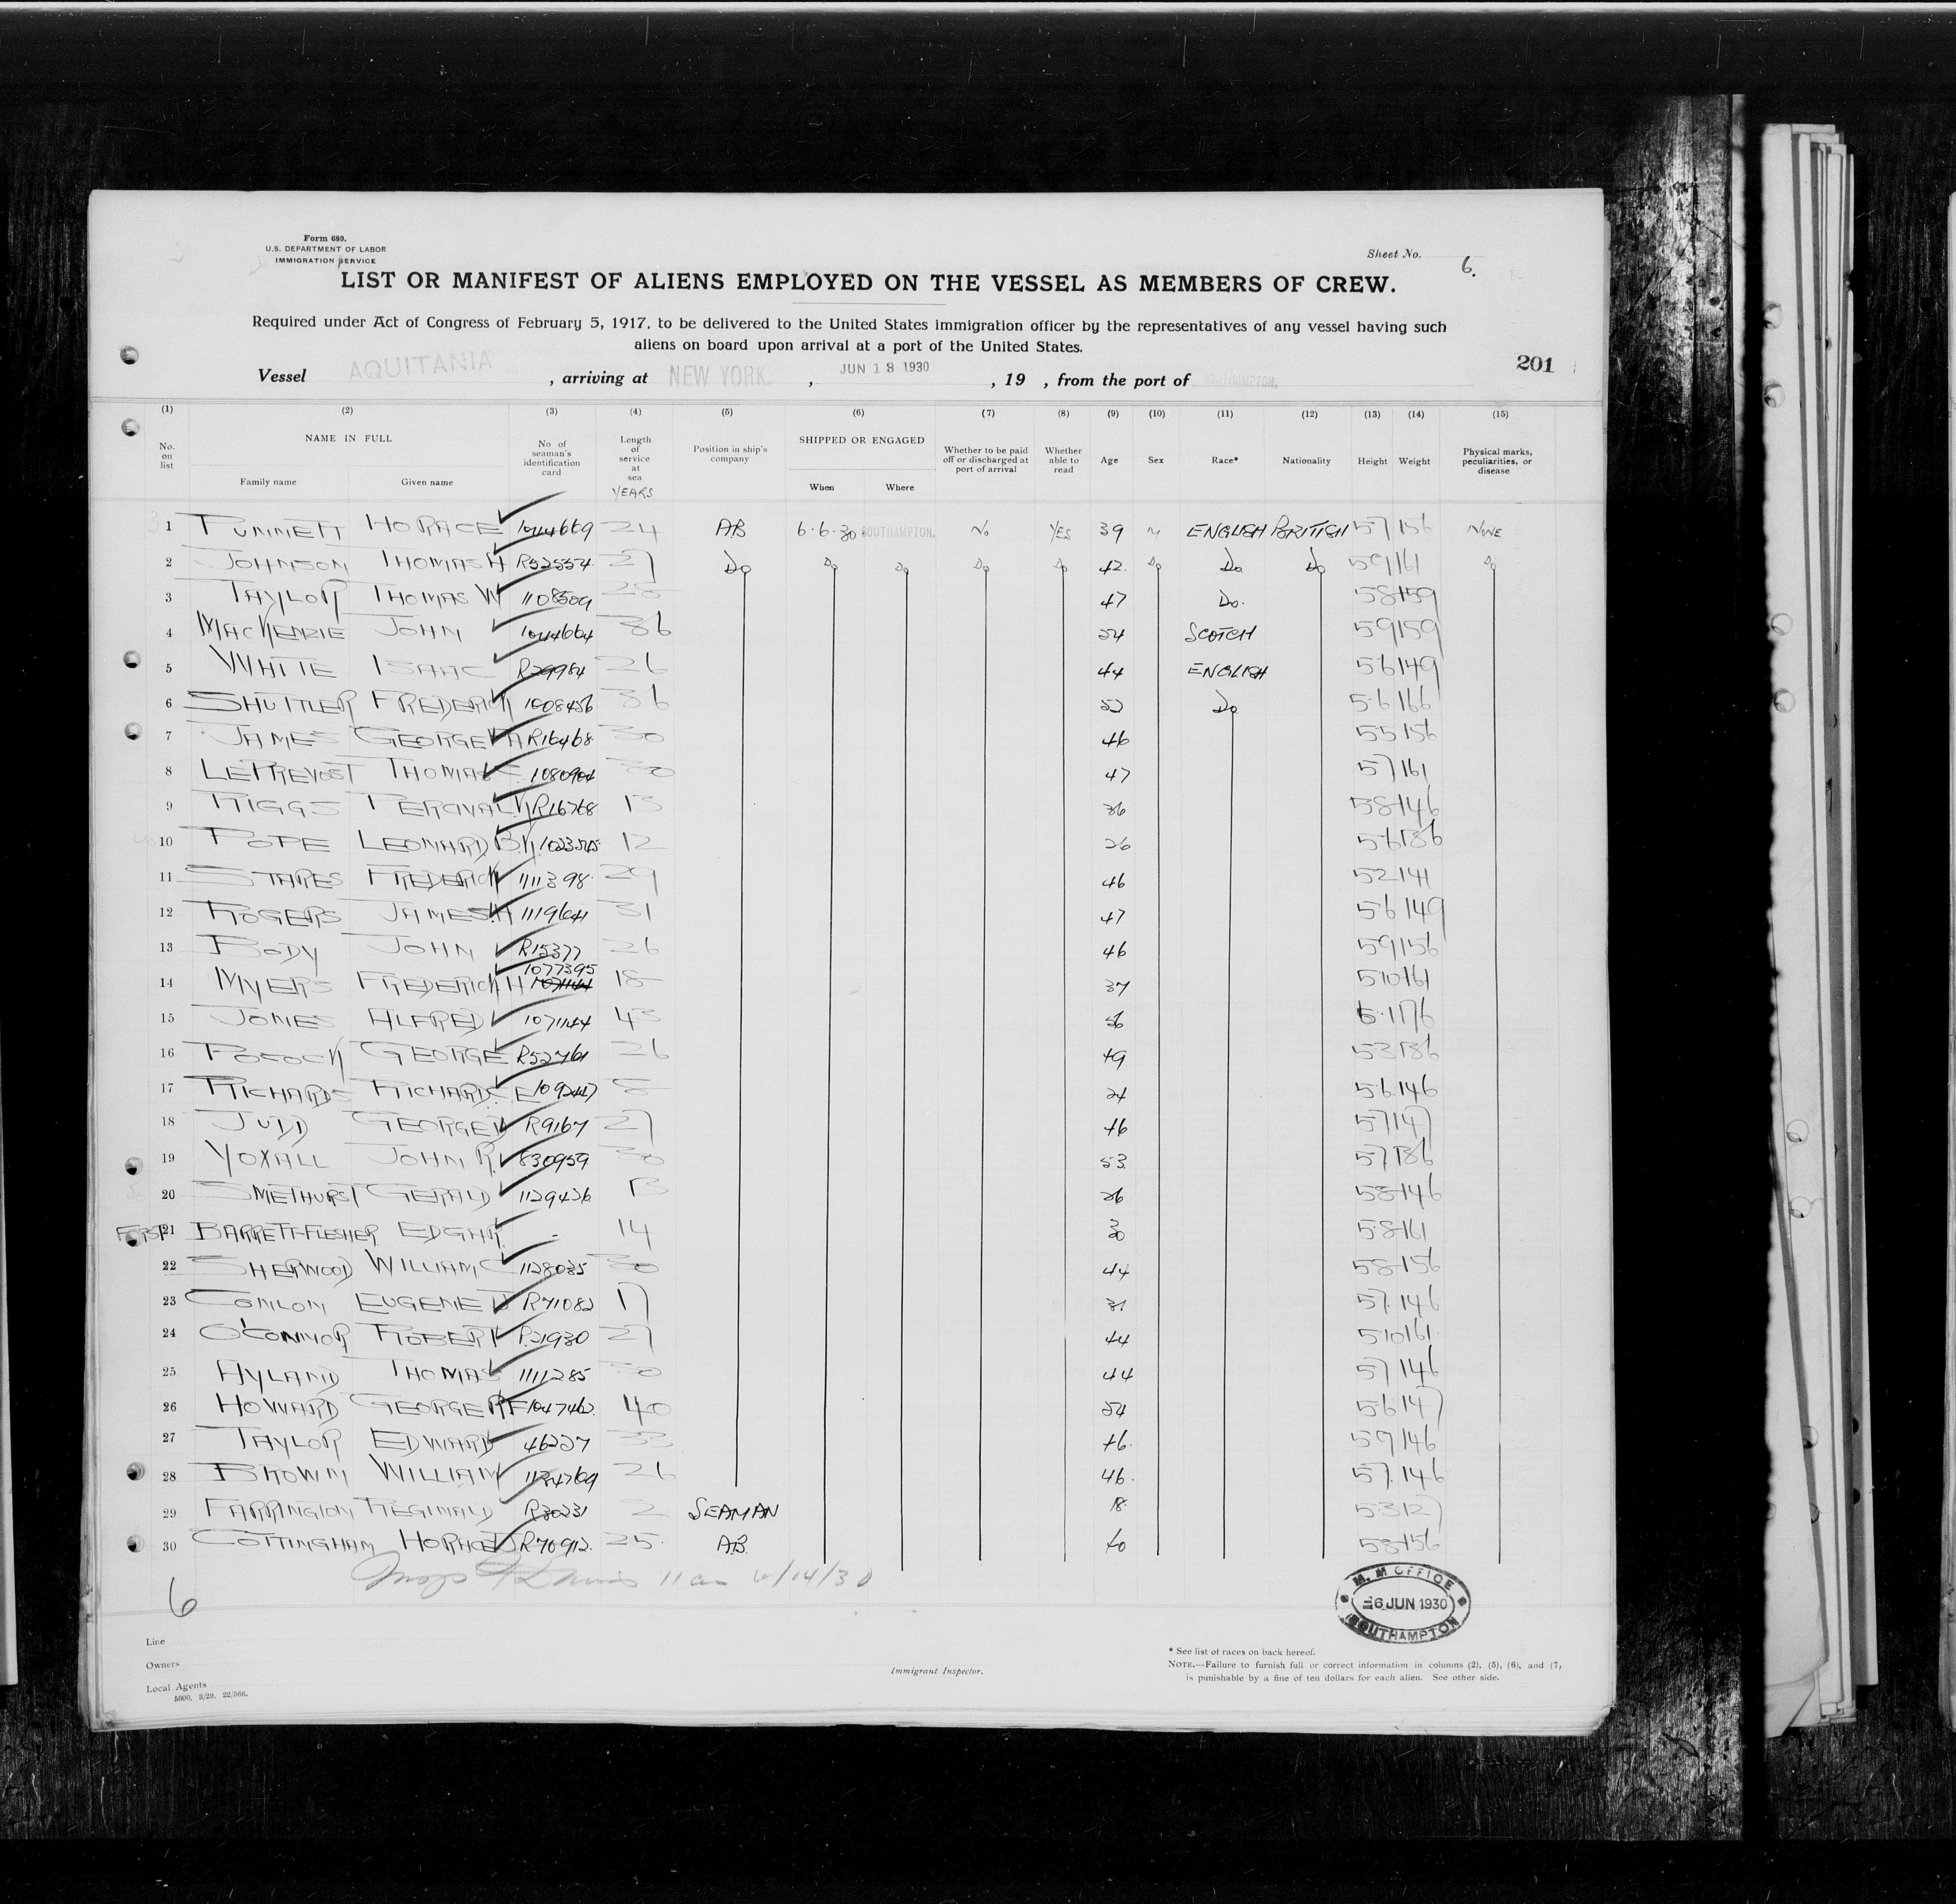 Form 680.
U.S. DEPARTMENT OF LABOR
IMMIGRATION SERVICE
Sheet No. 6.
LIST OR MANIFEST OF ALIENS EMPLOYED ON THE VESSEL AS MEMBERS OF CREW.
Required under Act of Congress of February 5, 1917, to be delivered to the United States immigration officer by the representatives of any vessel having such
aliens on board upon arrival at a port of the United States.
201
Vessel AQUITANIA, arriving at NEW YORK., JUN 13 1930, 19 , from the port of SOUTHAMPTON.
(1) (2) (3) (4) (5) (6) (7) (8) (9) (10) (11) (12) (13) (14) (15)
No. on list NAME IN FULL Family name Given name No. of seaman's identification card Length of service at sea YEARS Position in ship's company SHIPPED OR ENGAGED When Where Whether to be paid off or discharged at port of arrival Whether able to read Age Sex Race* Nationality Height Weight Physical marks, peculiarities, or disease
1 HORACE 1044669 24 AB 6.6.30 SOUTHAMPTON. No YES 39 M ENGLISH BRITISH 57 156 NONE
2 JOHNSON THOMAS H R52554 27 Do Do Do Do Do 42 Do Do Do 59 161 Do
3 TAYLOR THOMAS W 1108509 47 Do. 58 159
4 MACKENZIE JOHN 1044664 36 54 SCOTCH 59 159
5 WHITE ISAAC R29984 26 44 ENGLISH 56 149
6 SHUTTLER FREDERICK 1008456 36 Do 56 166
7 JAMES GEORGE R16468 30 46 55 156
8 LEPREVOST THOMAS 1080904 30 47 57 161
9 RIGGS PERCIVAL R16768 13 36 58 146
10 POPE LEONARD 12 26 56 136
11 STARES FREDERICK 1111398 29 46 52 141
12 ROGERS JAMES H 1119641 31 47 56 149
13 BODY JOHN R15377 26 46 59 156
14 MYERS FREDERICK H 1077395 18 37 510 161
15 JONES ALFRED 1071144 43 56 176
16 POCOCK GEORGE R52761 26 49 53 136
17 RICHARDS RICHARD E 24 56 146
18 JUDD GEORGE R9167 27 46 57 147
19 YOXALL JOHN R. 830959 30 53 57 136
20 SMETHURST GERALD 1129436 13 36 58 146
21 BARRETT-FLESHER EDGAR - 14 58 161
22 SHERWOOD WILLIAM C 1128035 30 44 58 156
23 CONLON EUGENE R71082 17 31 57 146
24 O'CONNOR ROBERT R21930 27 44 510 161
25 HYLAND THOMAS 1111285 30 44 57 146
26 HOWARD GEORGE 1047462 40 54 56 147
27 TAYLOR EDWARD 46227 33 46 59 146
28 BROWN WILLIAM 26 46 57 146
29 FARRINGTON REGINALD R80231 2 SEAMAN 18 53 127
30 COTTINGHAM HORACE R70912 25 AB 40 58 156
6
M. M OFFICE
6 JUN 1930
SOUTHAMPTON
Line
Owners
Local Agents
5000. 3/29. 22/566.
Immigrant Inspector.
* See list of races on back hereof.
NOTE.—Failure to furnish full or correct information in columns (2), (5), (6), and (7,
is punishable by a fine of ten dollars for each alien. See other side.